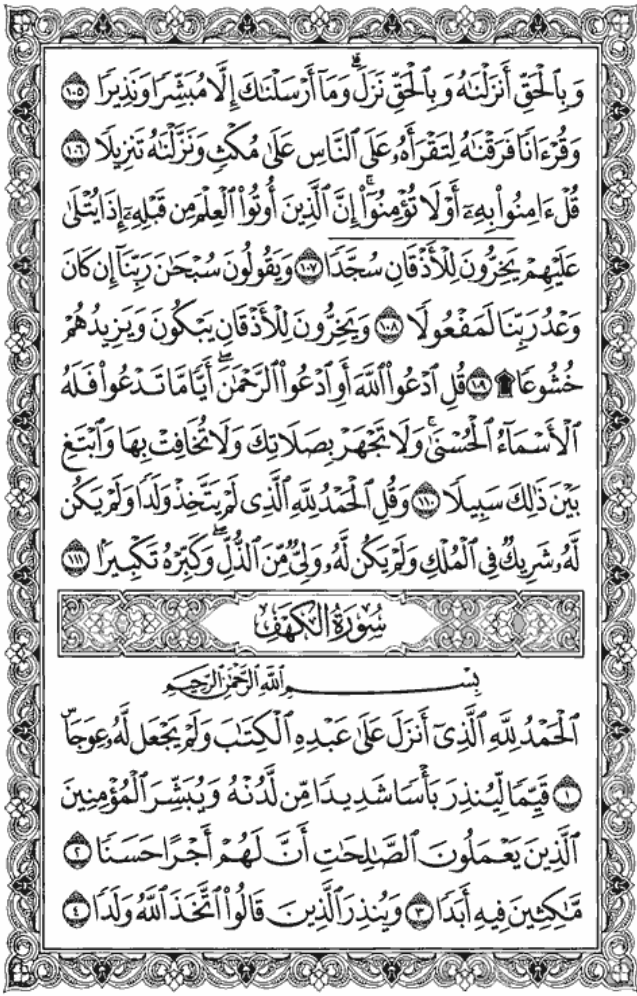 وَبِالْحَقِّ أَنزَلْنَاهُ وَبِالْحَقِّ نَزَلَ ۗ وَمَا أَرْسَلْنَاكَ إِلَّا مُبَشِّرًا وَنَذِيرًا ۝١٠٥
وَقُرْءَانًا فَرَقْنَاهُ لِتَقْرَأَهُۥ عَلَى ٱلنَّاسِ عَلَىٰ مُكْثٍ وَنَزَّلْنَاهُ تَنزِيلًا ۝١٠٦
قُلْ ءَامِنُوا۟ بِهِۦٓ أَوْ لَا تُؤْمِنُوٓا۟ ۚ إِنَّ ٱلَّذِينَ أُوتُوا۟ ٱلْعِلْمَ مِن قَبْلِهِۦٓ إِذَا يُتْلَىٰ
عَلَيْهِمْ يَخِرُّونَ لِلْأَذْقَانِ سُجَّدًا ۝١٠٧ وَيَقُولُونَ سُبْحَـٰنَ رَبِّنَآ إِن كَانَ
وَعْدُ رَبِّنَا لَمَفْعُولًا ۝١٠٨ وَيَخِرُّونَ لِلْأَذْقَانِ يَبْكُونَ وَيَزِيدُهُمْ
خُشُوعًا ۩ ۝١٠٩ قُلِ ٱدْعُوا۟ ٱللَّهَ أَوِ ٱدْعُوا۟ ٱلرَّحْمَـٰنَ ۖ أَيًّا مَّا تَدْعُوا۟ فَلَهُ
ٱلْأَسْمَآءُ ٱلْحُسْنَىٰ ۚ وَلَا تَجْهَرْ بِصَلَاتِكَ وَلَا تُخَافِتْ بِهَا وَٱبْتَغِ
بَيْنَ ذَٰلِكَ سَبِيلًا ۝١١٠ وَقُلِ ٱلْحَمْدُ لِلَّهِ ٱلَّذِى لَمْ يَتَّخِذْ وَلَدًا وَلَمْ يَكُن
لَّهُۥ شَرِيكٌ فِى ٱلْمُلْكِ وَلَمْ يَكُن لَّهُۥ وَلِىٌّ مِّنَ ٱلذُّلِّ ۖ وَكَبِّرْهُ تَكْبِيرًۢا ۝١١١
سُورَةُ الكَهْفِ
بِسْمِ اللَّهِ الرَّحْمَٰنِ الرَّحِيمِ
ٱلْحَمْدُ لِلَّهِ ٱلَّذِىٓ أَنزَلَ عَلَىٰ عَبْدِهِ ٱلْكِتَـٰبَ وَلَمْ يَجْعَل لَّهُۥ عِوَجَا ۜ
۝١ قَيِّمًا لِّيُنذِرَ بَأْسًا شَدِيدًا مِّن لَّدُنْهُ وَيُبَشِّرَ ٱلْمُؤْمِنِينَ
ٱلَّذِينَ يَعْمَلُونَ ٱلصَّـٰلِحَـٰتِ أَنَّ لَهُمْ أَجْرًا حَسَنًا ۝٢
مَّـٰكِثِينَ فِيهِ أَبَدًا ۝٣ وَيُنذِرَ ٱلَّذِينَ قَالُوا۟ ٱتَّخَذَ ٱللَّهُ وَلَدًا ۝٤